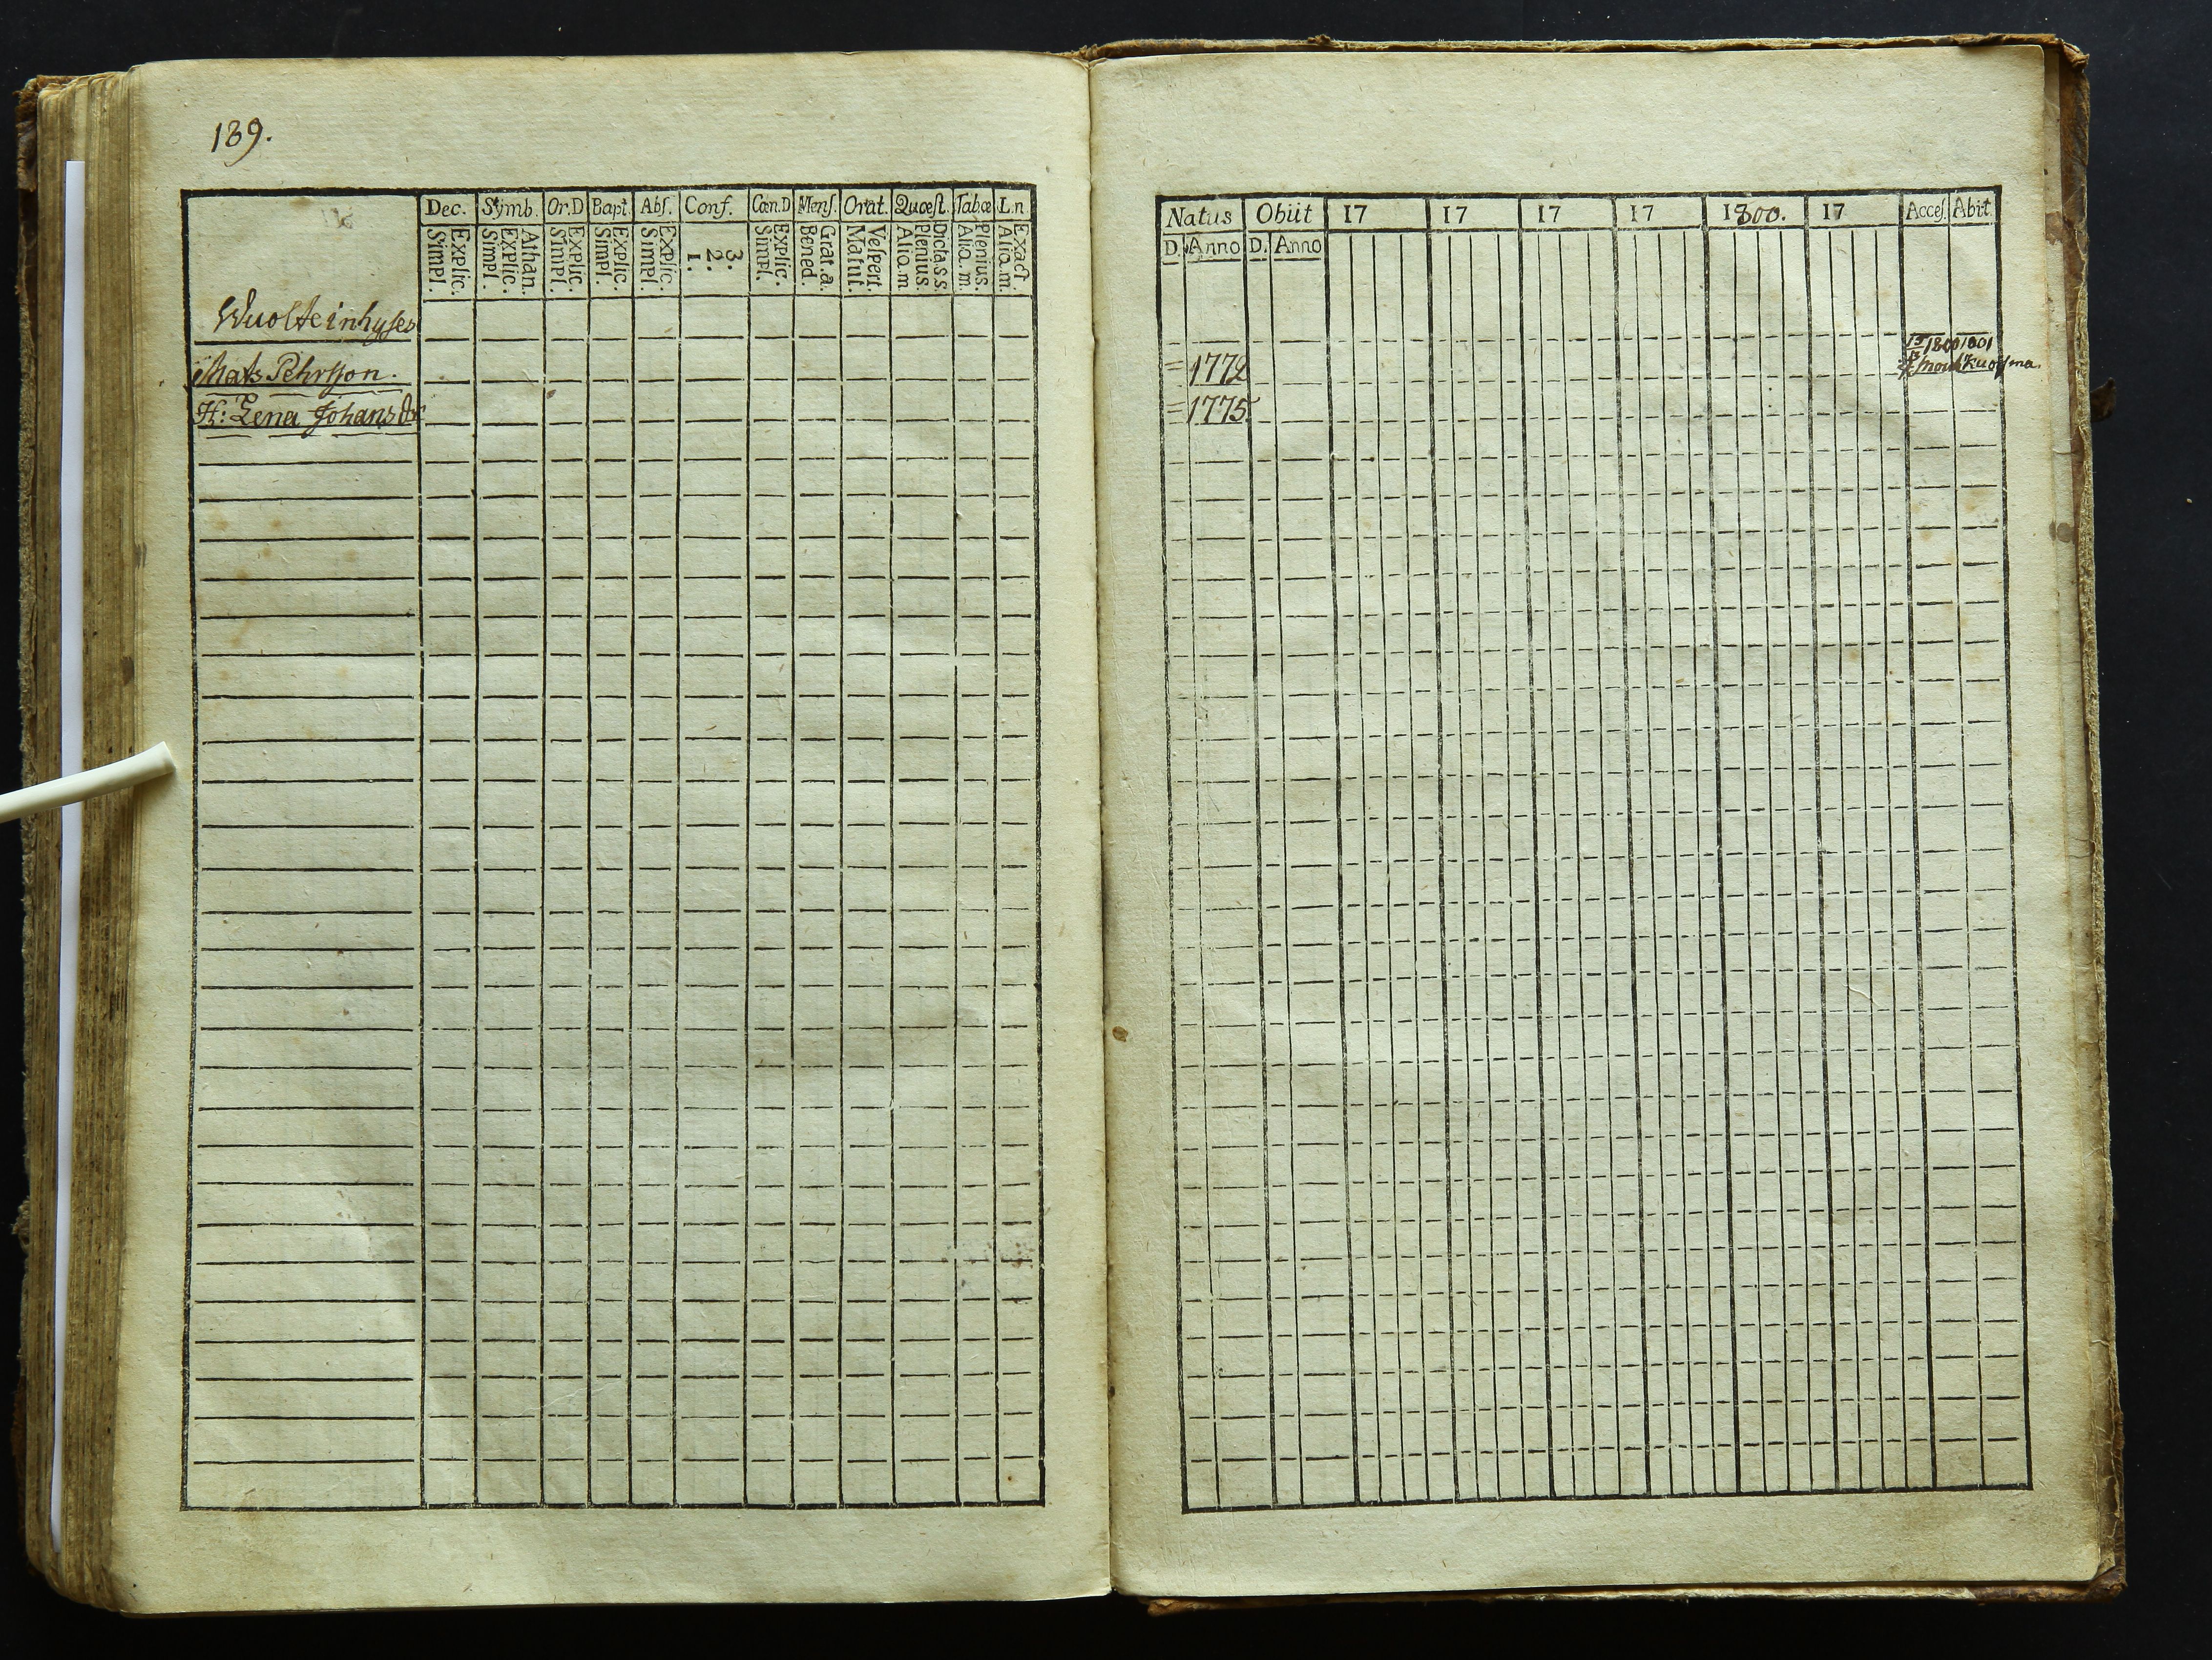 189.
Dec. Symb. Or.D Bapt. Abs. Conf. Cœn.D Mens. Orat. Quæst. Tab.œ L.n
Explic. Simpl. Athan. Explic. Simpl. Explic. Simpl. Explic. Simpl. Explic. Simpl. 3. 2. 1. Explic. Simpl. Grat.a. Bened. Vespert. Matut. Dicta.s.s. Plenius. Alio.m Plenius. Alio.m. Exact. Alio.m.
Mats Pehrsson.
H: Lena Johansdr
Natus Obiit 17 17 17 17 1800. 17 Acces. Abit.
D. Anno D. Anno
1772
1775